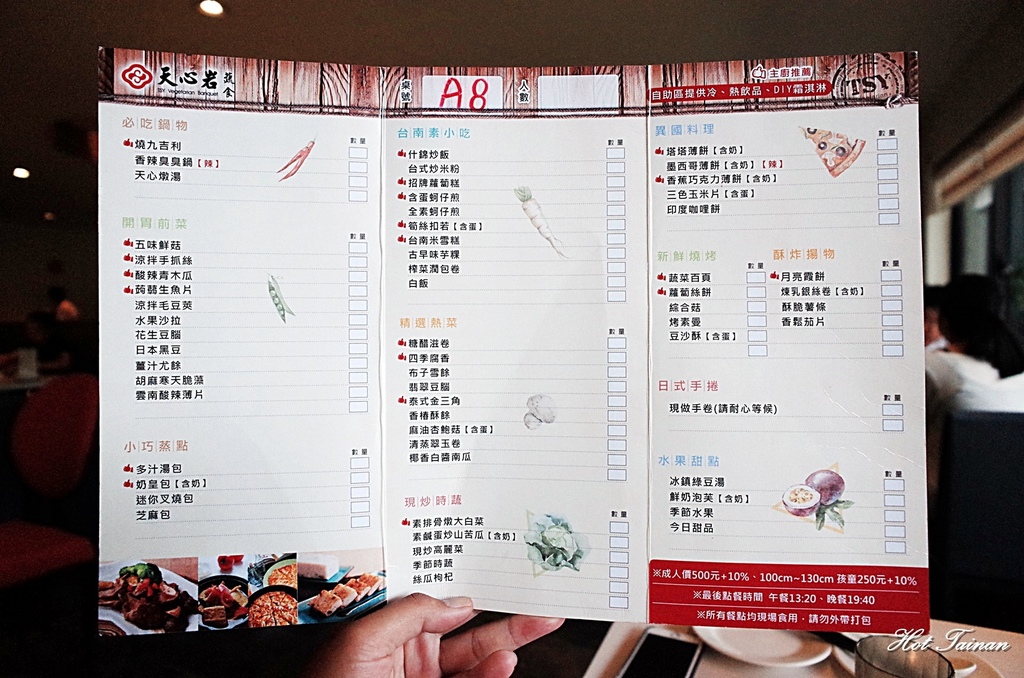 天心岩 蔬食
TSY Vegetarian Banquet
必吃鍋物
數量
燒九吉利
香辣臭臭鍋【辣】
天心燉湯
開胃前菜
數量
五味鮮菇
涼拌手抓絲
酸辣青木瓜
蒟蒻生魚片
涼拌毛豆莢
水果沙拉
花生豆腦
日本黑豆
薑汁尤餘
胡麻寒天脆藻
雲南酸辣薄片
小巧蒸點
數量
多汁湯包
奶皇包【含奶】
迷你叉燒包
芝麻包
桌號 A8 人數
台南素小吃
數量
什錦炒飯
台式炒米粉
招牌蘿蔔糕
含蛋蚵仔煎
全素蚵仔煎
筍絲扣若【含蛋】
台南米雪糕
古早味芋粿
榨菜潤包卷
白飯
精選熱菜
數量
糖醋滋卷
四季腐香
布子雪餘
翡翠豆腦
泰式金三角
香椿酥餘
麻油杏鮑菇【含蛋】
清蒸翠玉卷
椰香白醬南瓜
現炒時蔬
數量
素排骨燉大白菜
素鹹蛋炒山苦瓜【含奶】
現炒高麗菜
季節時蔬
絲瓜枸杞
主廚推薦
自助區提供冷、熱飲品、DIY霜淇淋
TSY
異國料理
數量
塔塔薄餅【含奶】
墨西哥薄餅【含奶】【辣】
香蕉巧克力薄餅【含奶】
三色玉米片【含蛋】
印度咖哩餅
新鮮燒烤
數量
蔬菜百頁
蘿蔔絲餅
綜合菇
烤素曼
豆沙酥【含蛋】
酥炸搨物
數量
月亮霞餅
煉乳銀絲卷【含奶】
酥脆薯條
香鬆茄片
日式手捲
數量
現做手卷(請耐心等候)
水果甜點
數量
冰鎮綠豆湯
鮮奶泡芙【含奶】
季節水果
今日甜品
※成人價500元+10%、100cm~130cm 孩童250元+10%
※最後點餐時間 午餐13:20、晚餐19:40
※所有餐點均現場食用，請勿外帶打包
Hot Tainan